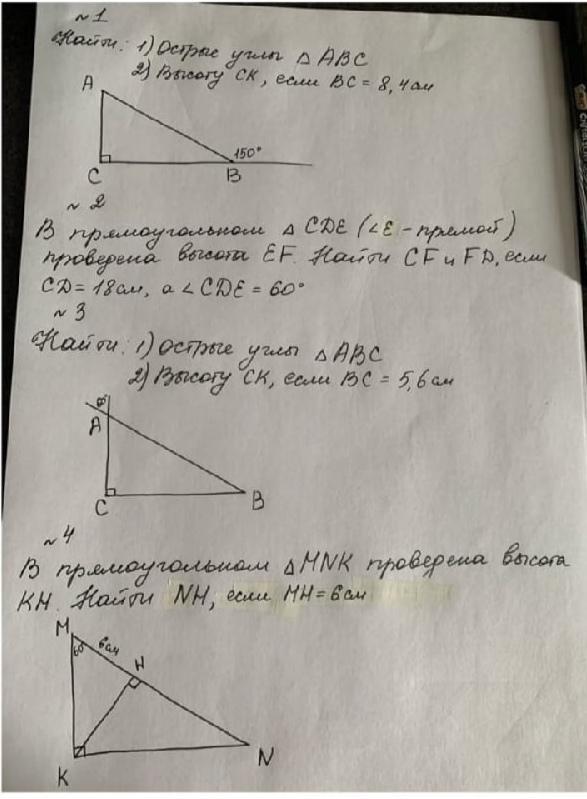 ~1
Найти: 1) Острые углы △ABC
2) Высоту CK, если BC = 8,4см
A
150°
C B
~2
В прямоугольном △CDE (∠E - прямой)
проведена высота EF. Найти CF и FD, если
CD = 18см, а ∠CDE = 60°
~3
Найти: 1) Острые углы △ABC
2) Высоту CK, если BC = 5,6см
A
C B
~4
В прямоугольном △MNK проведена высота
KH. Найти NH, если MH = 6см
M
60 6см
H
K N